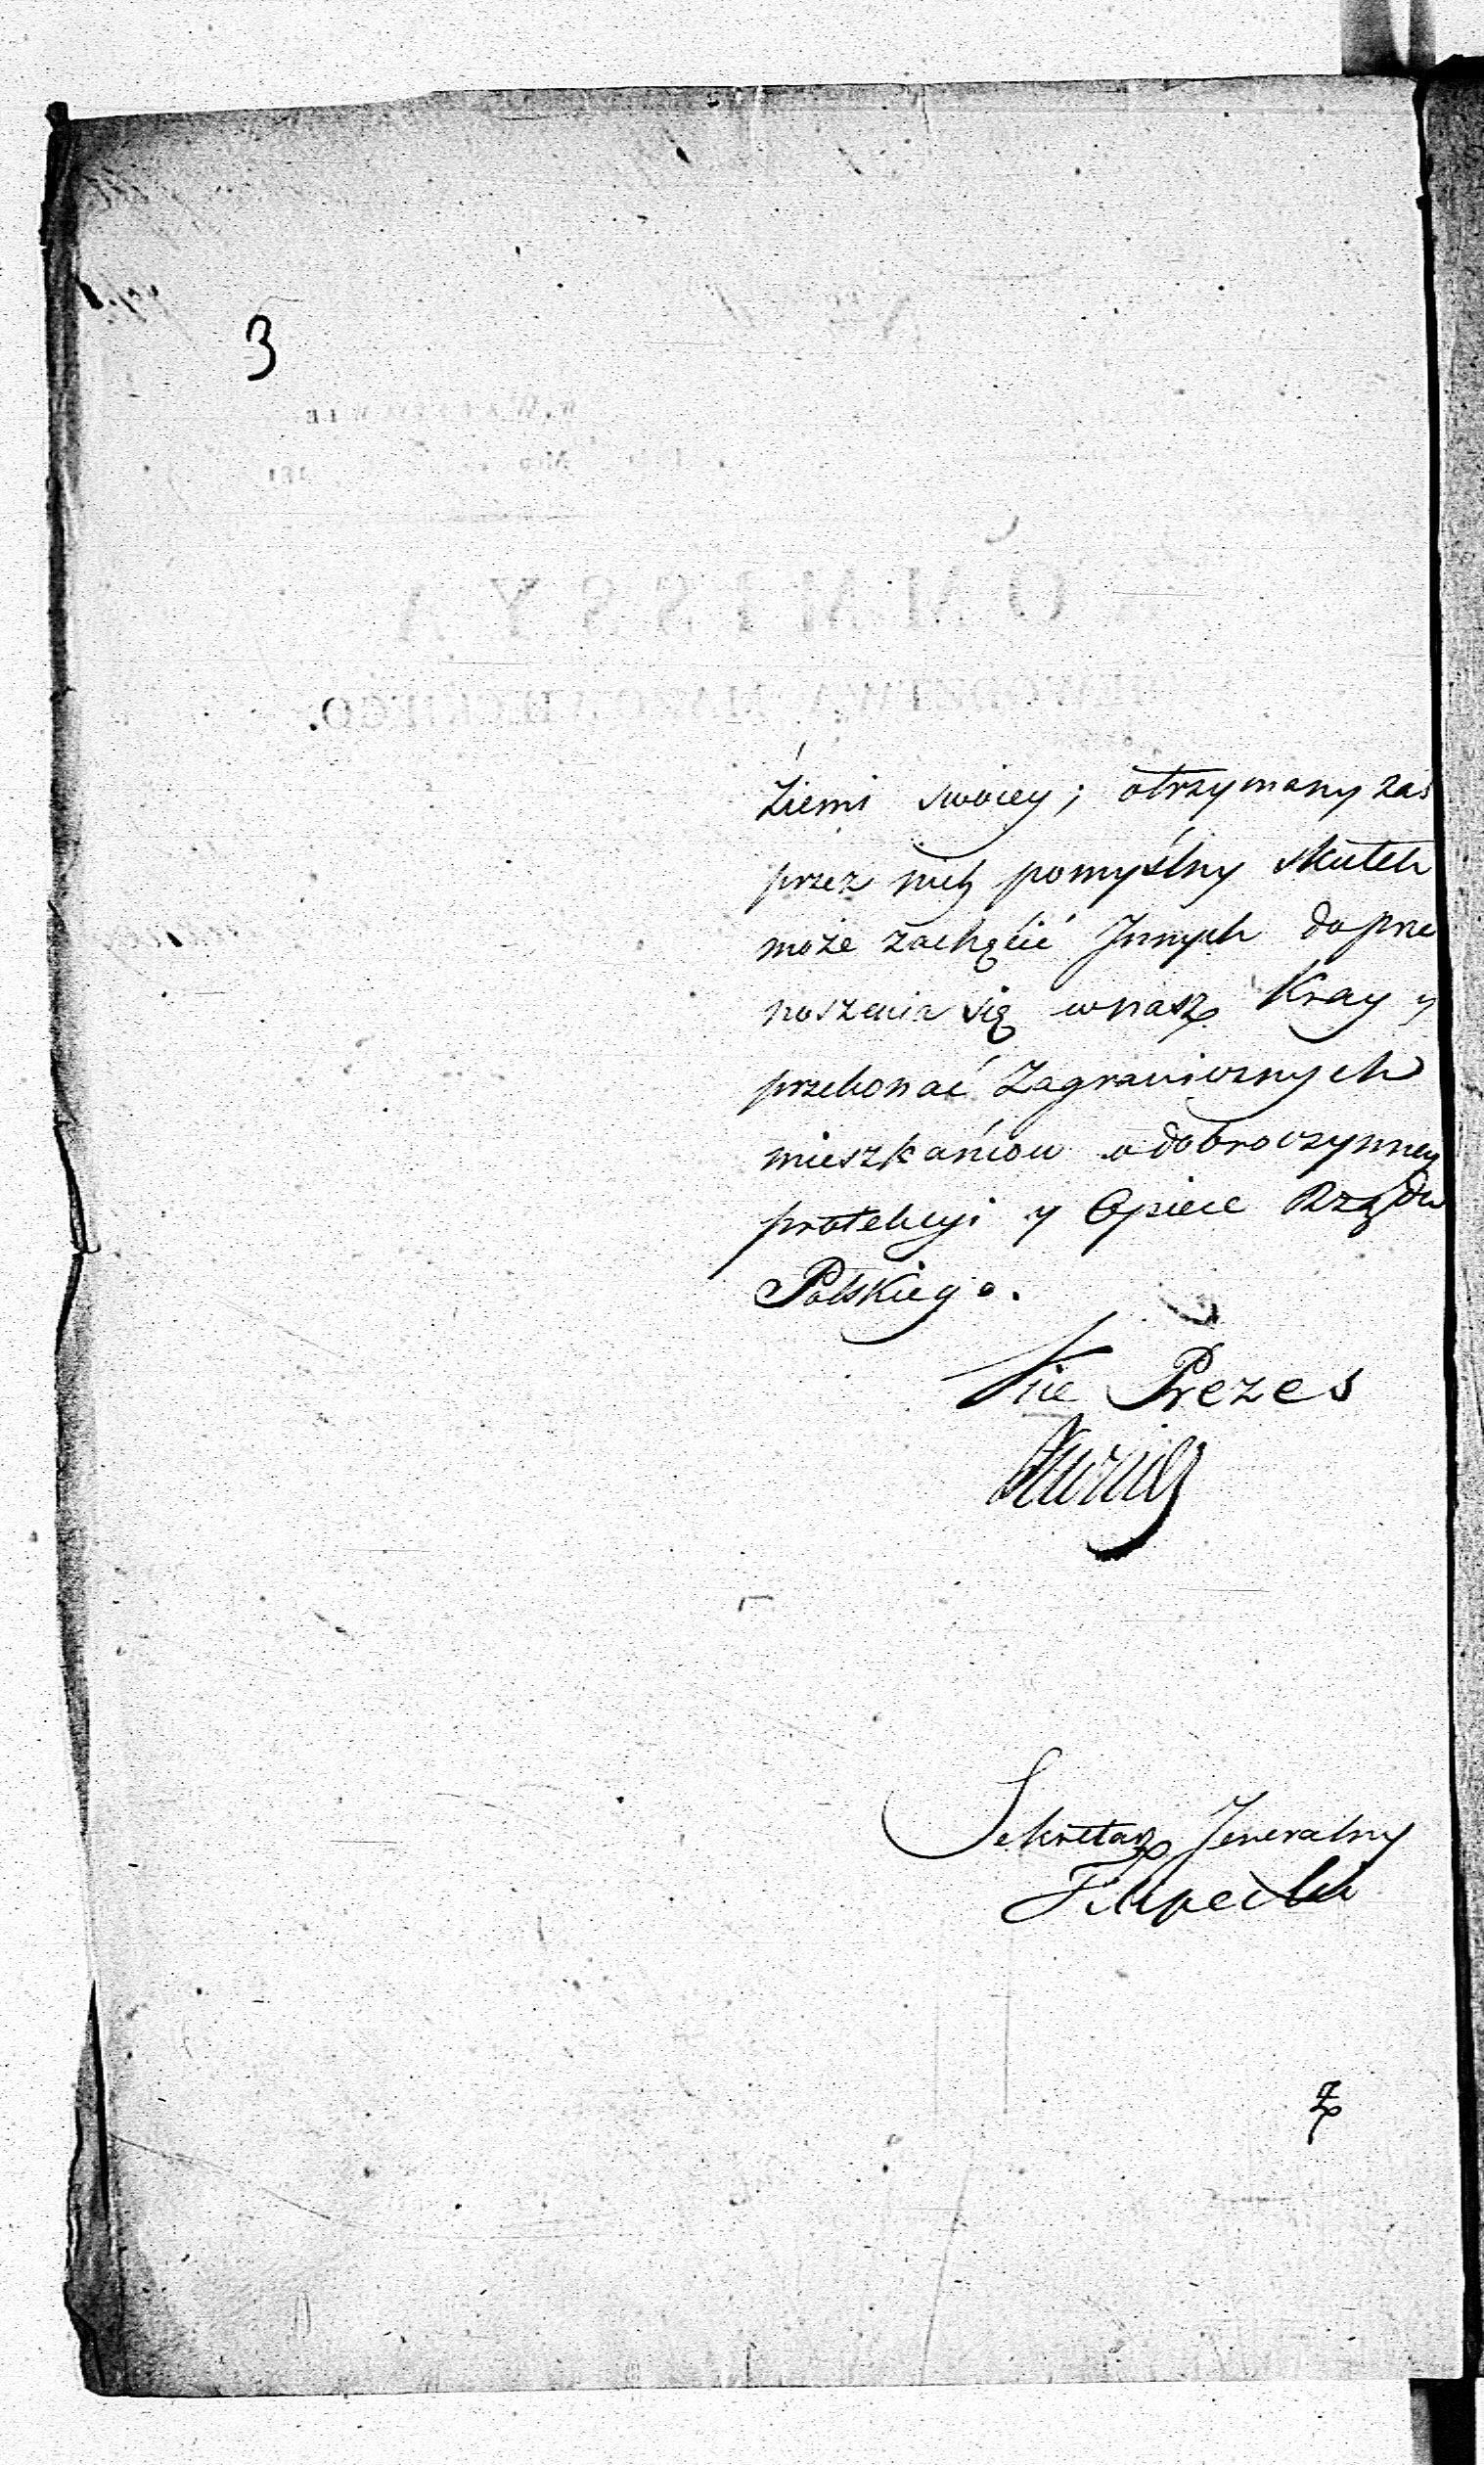 3
Ziemi swoiey; otrzymany zaś
przez nich pomyślny skutek
może zachęcić Jnnych do prze
noszenia się w nasz Kray y
przekonać Zagranicznych
mieszkańcow o dobroczynney
protekcyi y Opiece Rządu
Polskiego.
Vice Prezes
Sekretarz Jeneralny
Filipecki